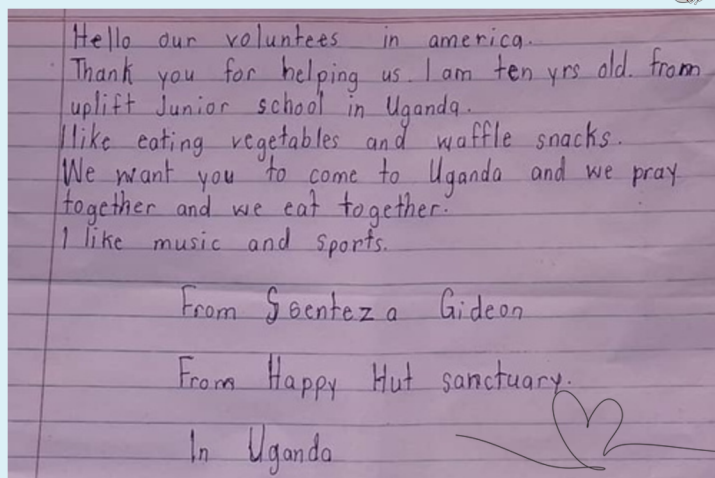 Hello our voluntees in america.
Thank you for helping us. I am ten yrs old. from
uplift Junior school in Uganda.
I like eating vegetables and waffle snacks.
We want you to come to Uganda and we pray
together and we eat together.
I like music and sports.
From Ssenteza Gideon
From Happy Hut sanctuary.
In Uganda